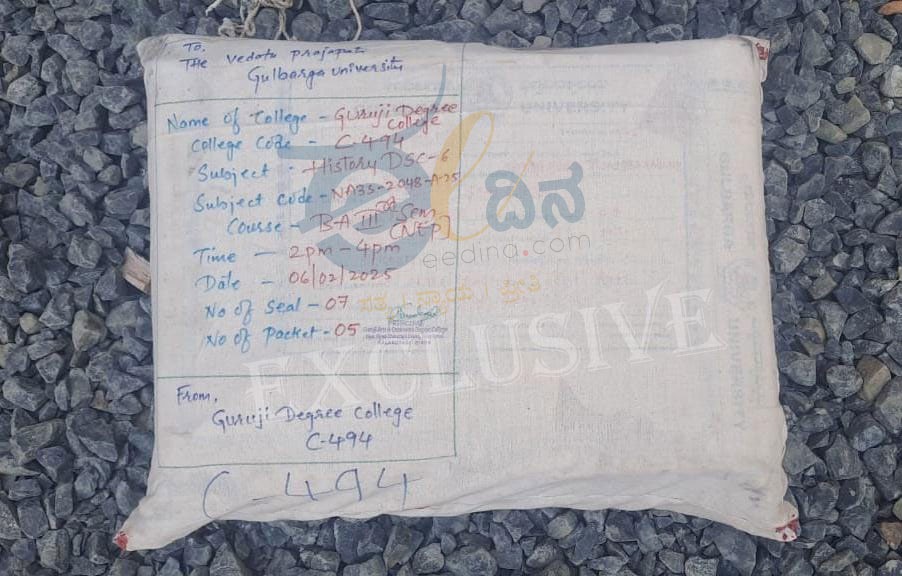 To,
The Vedatu Prajapati
Gulbarga University
Name of College - Guruji Degree
College
College Code - C-494
Subject - History DSC-6
Subject Code - NA3S-2048-A-25
Course - B.A III Sem
[NEP]
Time - 2pm - 4pm
Date - 06/02/2025
No of Seal - 07
No of Packet - 05
PRINCIPAL
From,
Guruji Degree College
C-494
C-494
ಈ ದಿನ
eedina.com
ಸತ್ಯ | ನ್ಯಾಯ | ಪ್ರೀತಿ
EXCLUSIVE